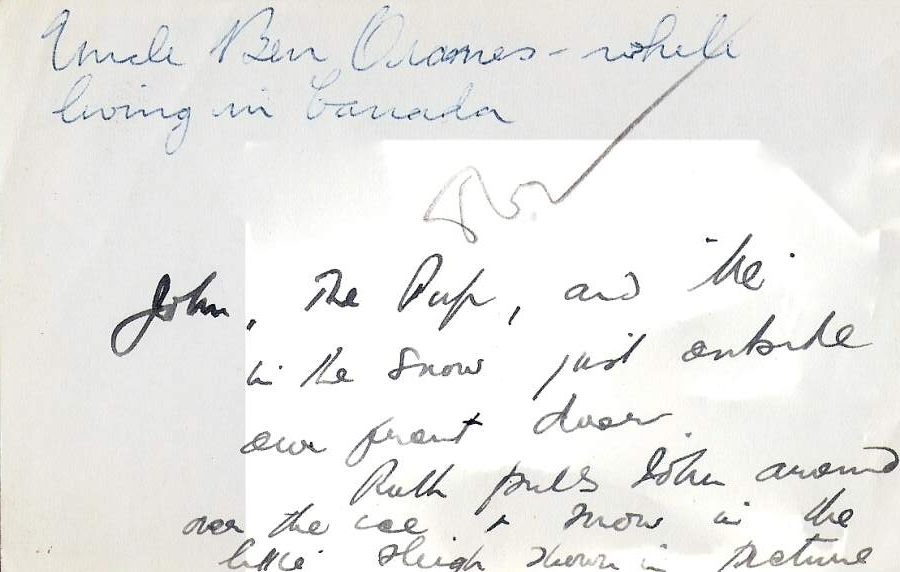 Uncle Ben Orames - while
living in Canada
John, The Pup, and "Me"
in the snow just outside
our front door.
Ruth pulls John around
over the ice + snow in the
little sleigh shown in picture